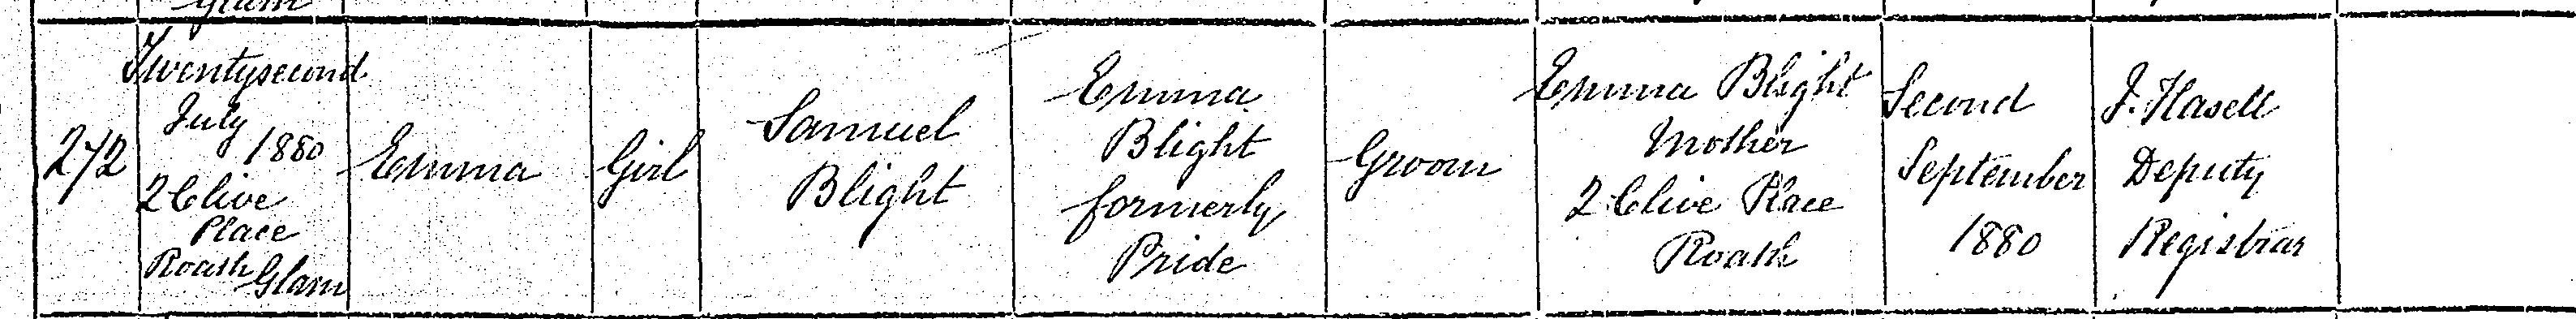 Glam
272
Twentysecond
July
1880
2 Clive
Place
Roath
Glam
Emma
Girl
Samuel
Blight
Emma
Blight
formerly
Pride
Groom
Emma Blight
Mother
2 Clive Place
Roath
Second
September
1880
J. Hasell
Deputy
Registrar